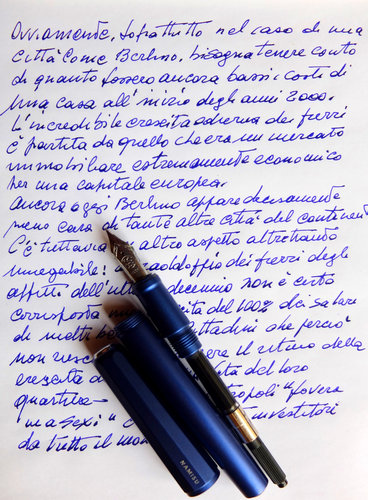 Ovviamente, soprattutto nel caso di una
città come Berlino, bisogna tenere conto
di quanto fossero ancora bassi i costi di
una casa all'inizio degli anni 2000.
L'incredibile crescita odierna dei prezzi
è partita da quello che era un mercato
immobiliare estremamente economico
per una capitale europea.
Ancora oggi Berlino appare decisamente
meno cara di tante altre città del continente
C'è tuttavia altro aspetto altrettanto
innegabile: raddoppio dei prezzi degli
affitti dell' decennio non è certo
corrisposta del 100% dei salari
di molti cittadini che perciò
non il ritmo della
crescita del loro
quartiere "povera
ma sexi" investitori
da tutto il
NAMISU